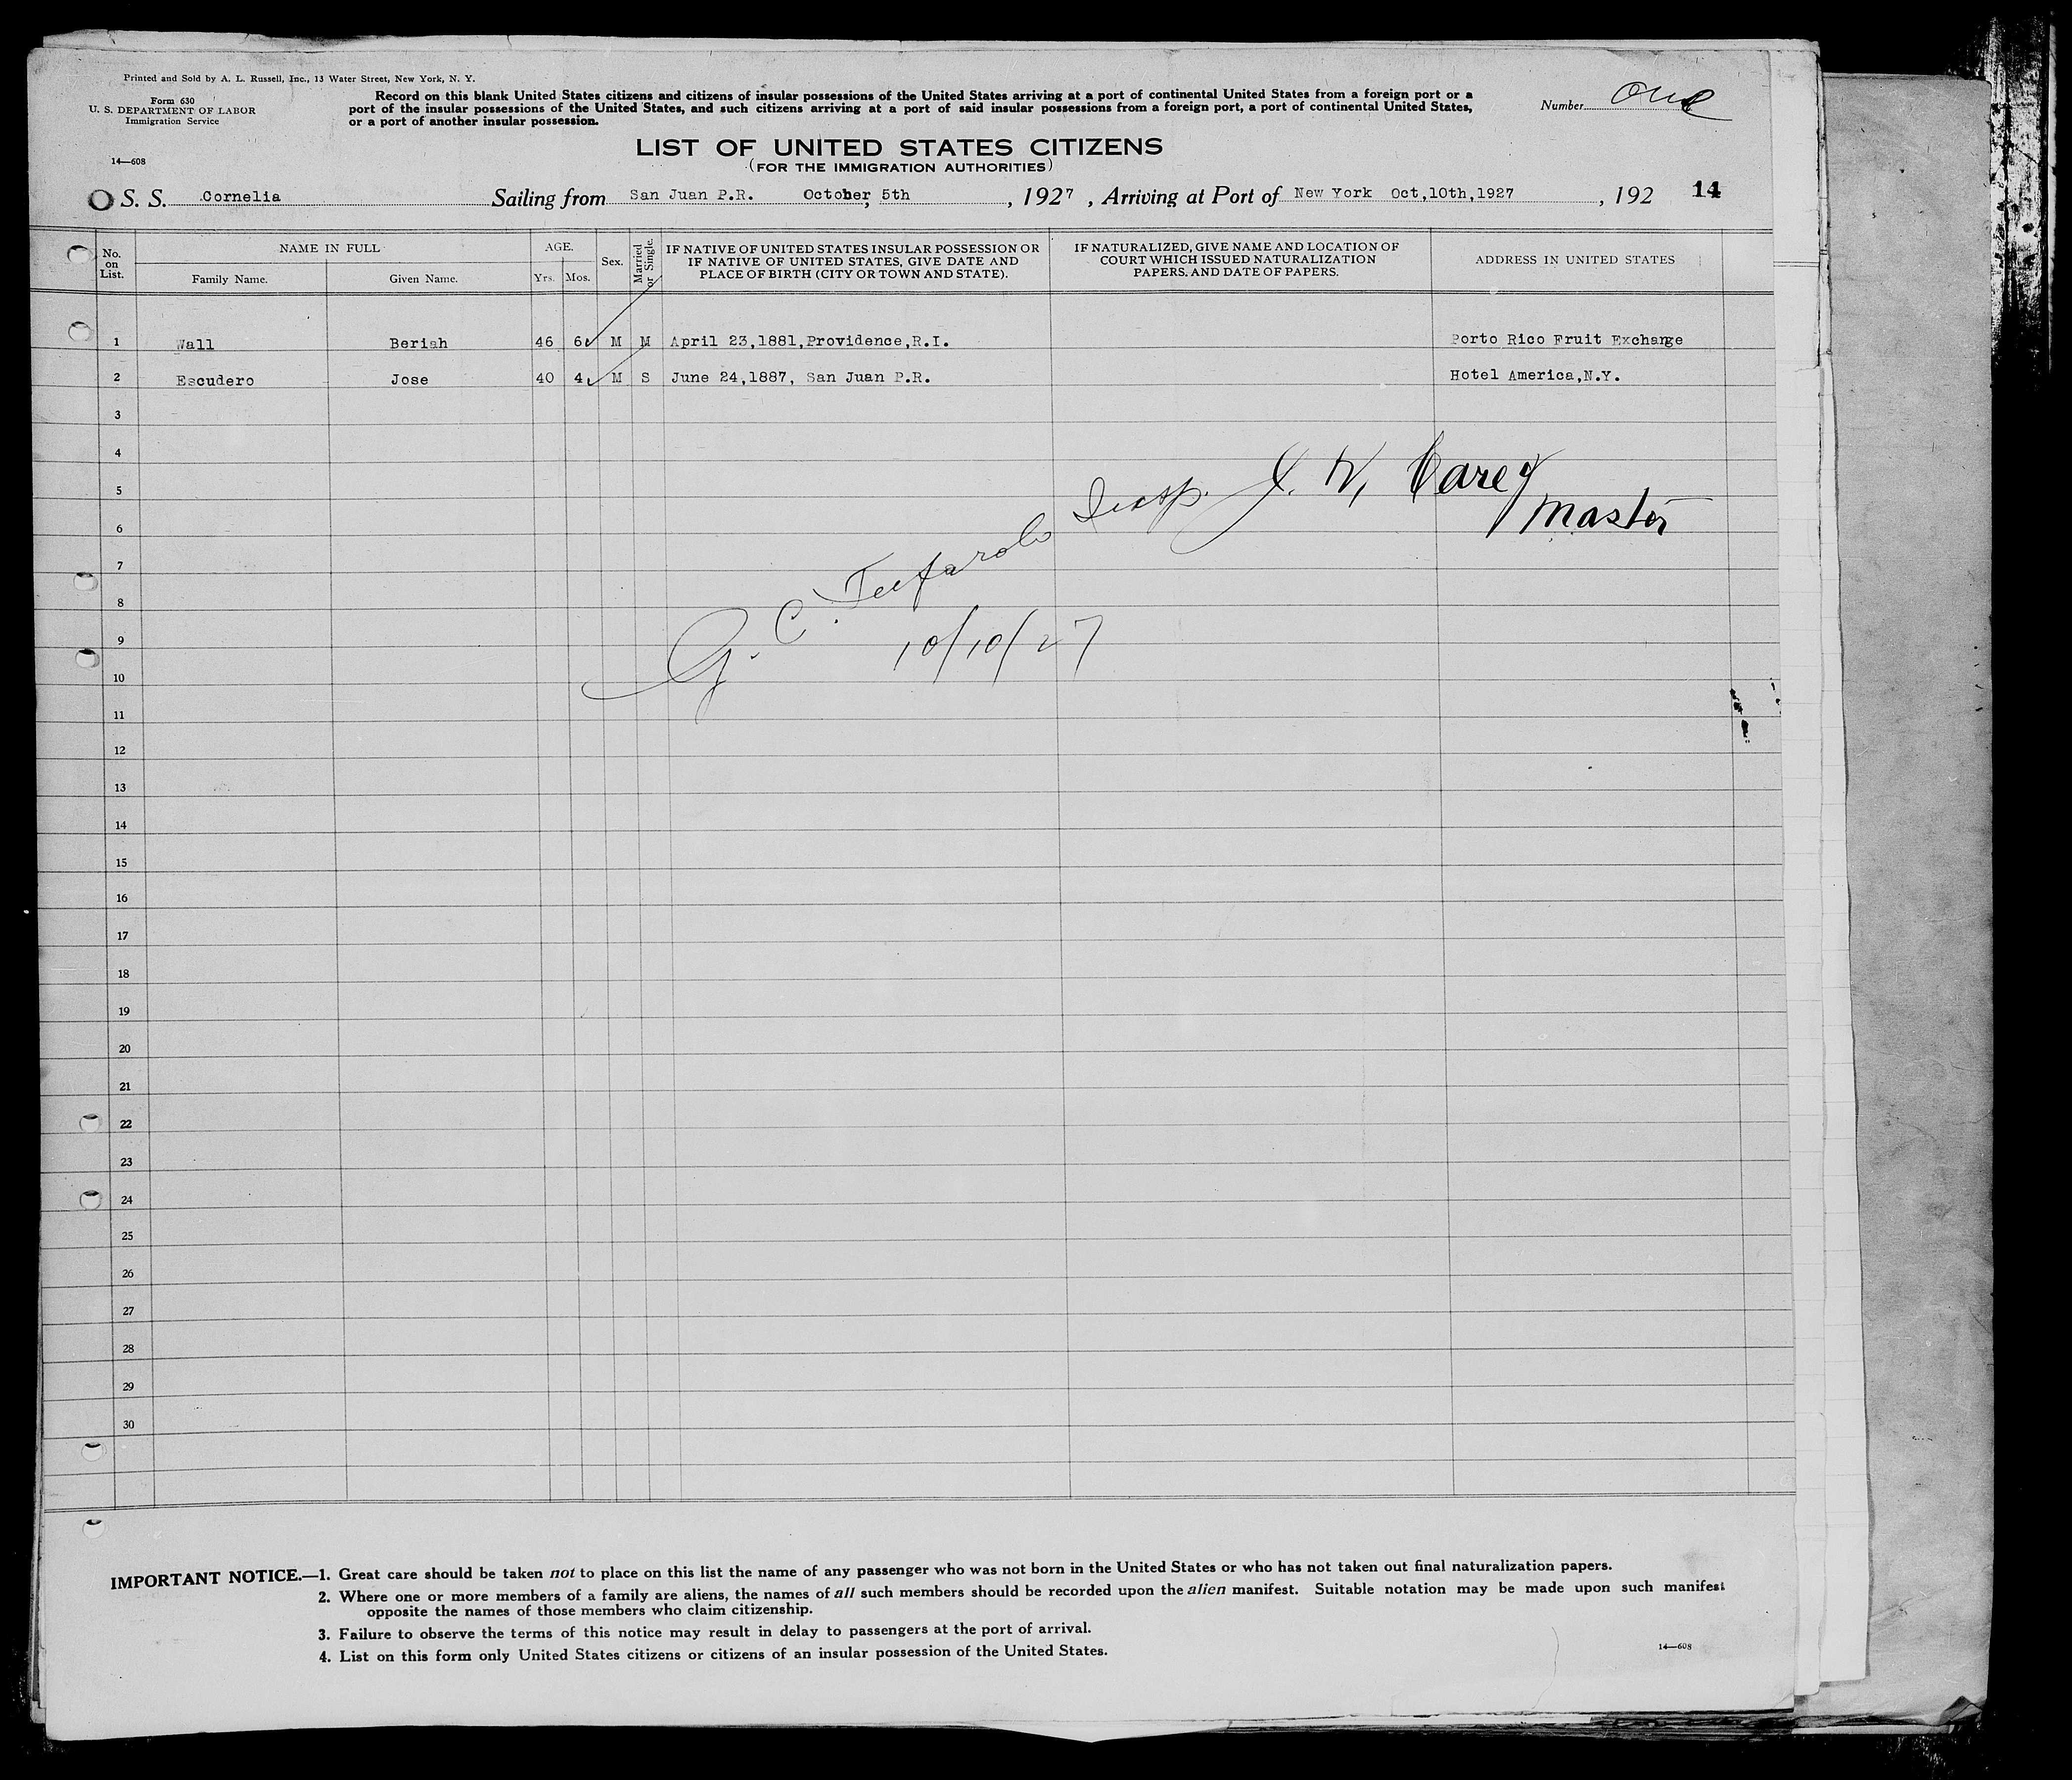 Printed and Sold by A. L. Russell, Inc., 13 Water Street, New York, N. Y.
Form 630
U. S. DEPARTMENT OF LABOR
Immigration Service
14—608
Record on this blank United States citizens and citizens of insular possessions of the United States arriving at a port of continental United States from a foreign port or a
port of the insular possessions of the United States, and such citizens arriving at a port of said insular possessions from a foreign port, a port of continental United States,
or a port of another insular possession.
Number one
LIST OF UNITED STATES CITIZENS
(FOR THE IMMIGRATION AUTHORITIES)
S. S. Cornelia Sailing from San Juan P.R. October, 5th, 1927, Arriving at Port of New York Oct,10th,1927, 192 14
No. on List.
NAME IN FULL
Family Name. Given Name.
AGE.
Yrs. Mos.
Sex.
Married or Single.
IF NATIVE OF UNITED STATES INSULAR POSSESSION OR
IF NATIVE OF UNITED STATES, GIVE DATE AND
PLACE OF BIRTH (CITY OR TOWN AND STATE).
IF NATURALIZED, GIVE NAME AND LOCATION OF
COURT WHICH ISSUED NATURALIZATION
PAPERS, AND DATE OF PAPERS.
ADDRESS IN UNITED STATES
1 Wall Beriah 46 6 M M April 23,1881,Providence,R.I. Porto Rico Fruit Exchange
2 Escudero Jose 40 4 M S June 24,1887, San Juan P.R. Hotel America,N.Y.
3
4
5
6
7
8
9
10
11
12
13
14
15
16
17
18
19
20
21
22
23
24
25
26
27
28
29
30
W, Carey
Master
G. C.
10/10/27
IMPORTANT NOTICE.—1. Great care should be taken not to place on this list the name of any passenger who was not born in the United States or who has not taken out final naturalization papers.
2. Where one or more members of a family are aliens, the names of all such members should be recorded upon the alien manifest. Suitable notation may be made upon such manifest
opposite the names of those members who claim citizenship.
3. Failure to observe the terms of this notice may result in delay to passengers at the port of arrival.
4. List on this form only United States citizens or citizens of an insular possession of the United States.
14—608